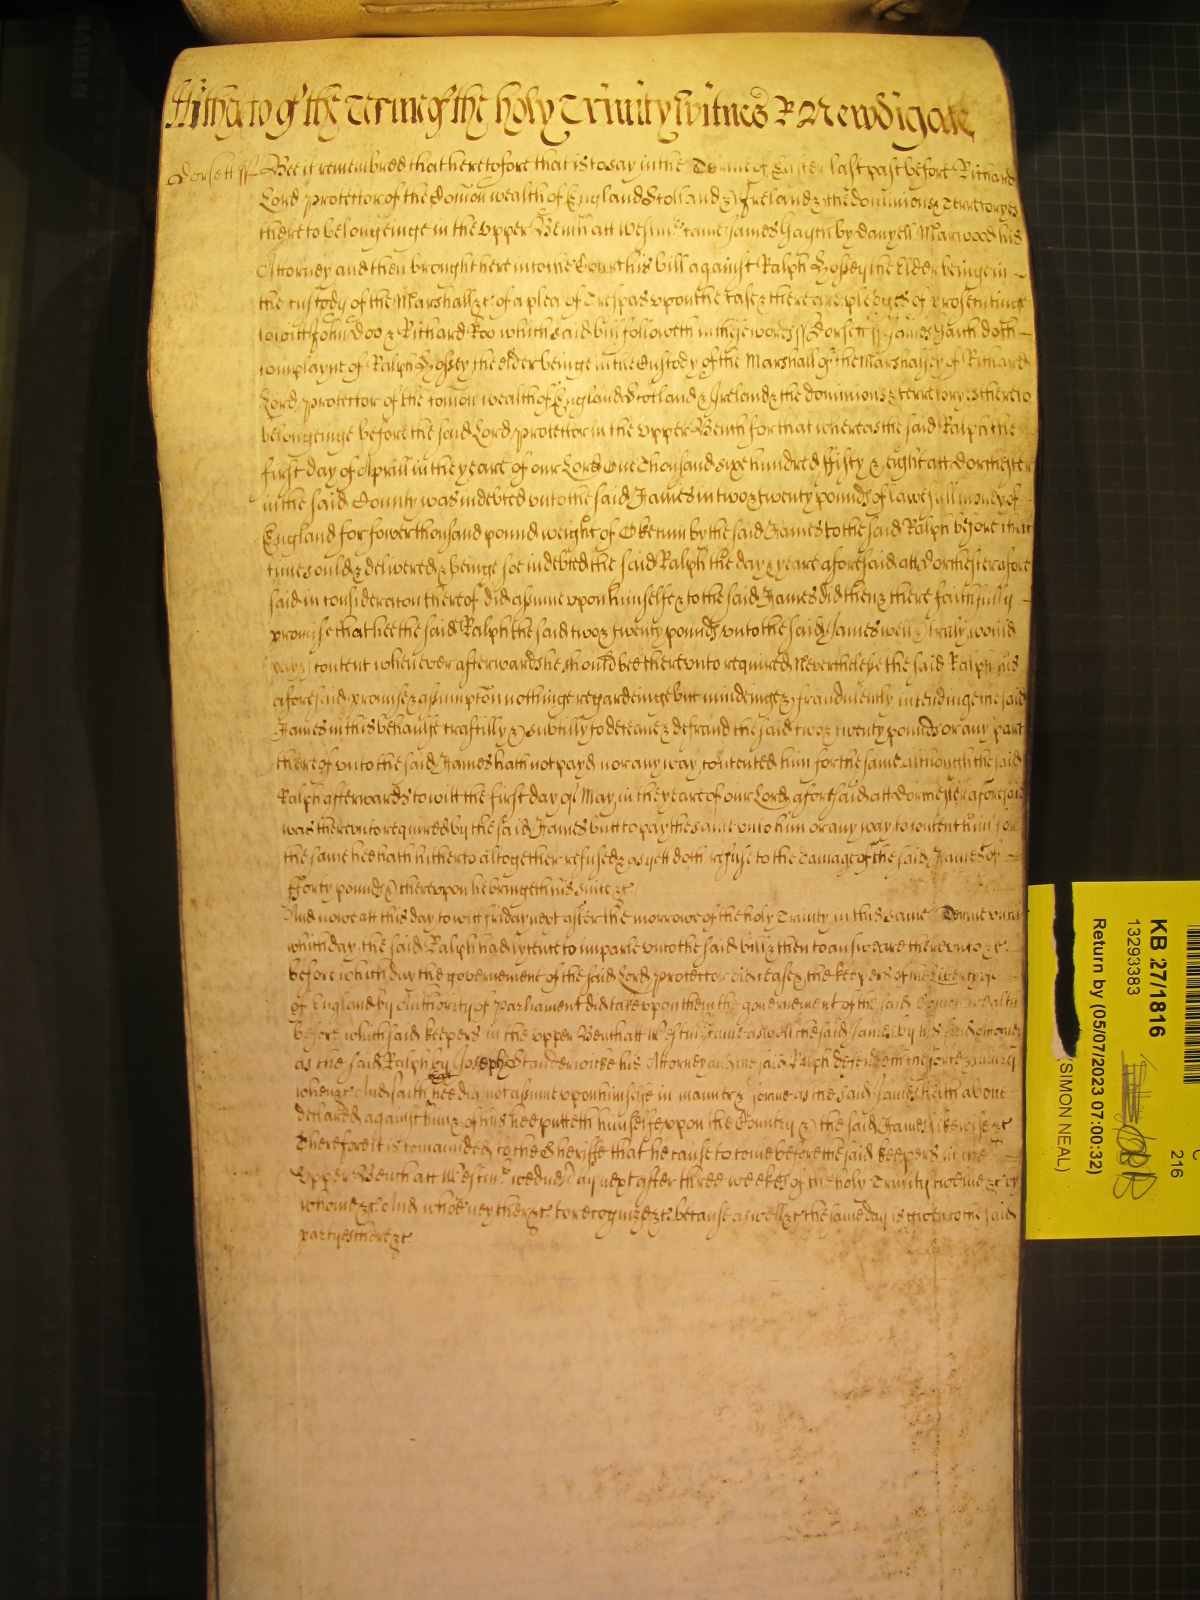 Hitherto of the Terme of the holy Trinity Witnes R Newdigate
Dorsett ss Bee it remembred that heretofore that is to say in the Terme of Easter last past before Richard
Lord protector of the Comon wealth of England Scotland & Ireland & the dominions & territoryes
thereto belongeinge in the upper Bench att Westmr came James by Danyell Marwood his
Attorney and then brought here into the Court his bill against Ralph Hossey the Elder beinge in
the custody of the Marshall &c of a plea of Trespas upon the case & there are pledges of prosecutinge
to witt John Doo & Richard Roo which said bill followeth in these words ss Dorsett ss James doth
complayne of Ralph Hossey the elder beinge in the Custody of the Marshall of the Marshalsey of Richard
Lord protector of the comon wealth of England Scotland & Ireland & the dominions & territoryes thereto
belongeinge before the said Lord protector in the upper Bench for that whereas the said Ralph the
first day of Aprill in the yeare of our Lord One Thousand sixe hundred ffifty & eight att Dorchester
in the said County was indebted unto the said James in two & twenty pounds of lawfull money of
England for fower thousand pound weight of by the said James to the said Ralph before that
time sould & delivered & beinge soe indebted the said Ralph the day & yeare aforesaid att Dorchester afore
said in consideracon thereof did assume upon himselfe & to the said James did then & there faithfully
promise that hee the said Ralph the said two & twenty pounds unto the said James well & truly would
pay & content whenever afterwards he should bee thereunto required Neverthelesse the said Ralph his
aforesaid promise & assumpton nothinge regardeinge but mindeinge & fraudulently intendinge the said
James in this behaulfe craftilly & subtilly to deceave & defraud the said two & twenty pounds or any part
thereof unto the said James hath not payd nor any way contented him for the same although the said
Ralph afterwards to witt the first day of May in the yeare of our Lord aforesaid att Dorchester aforesaid
was thereunto required by the said James butt to pay the same unto him or any way to content him for
the same hee hath hitherto altogether refused & as yett doth refuse to the damage of the said James of
fforty pounds & thereupon he bringeth his suite &c
And nowe att this day to witt friday next after the morrowe of the holy Trinity in this same Terme untill
which day the said Ralph had lycence to imparle unto the said bill & then to answeare thereunto &c
before which day the governement of the said Lord protector did cease & the keepers of the liberty
of England by Authority of Parliament did take upon them the governement of the said Comon wealth
before which said keepers in the upper Bench att Westmr came aswell the said James by his said Attorney
as the said Ralph by Joseph his Attorney and the said Ralph defendeth the force & iniury
when &c And saith that hee did not assume upon himselfe in manner & forme as the said James above
declared against him & of this hee putteth himselfe upon the Country & the said James likewise &c
Therefore it is comaunded to the Sheriffe that he cause to come before the said keepers in the
Upper Bench att Westmr wednesday next after three weekes of the holy Trinity twelve &c by
whome &c And whoe neyther &c to recognize &c because aswell &c the same day is given to the said
partyes there &c
KB 27/1816
13293383
Return by (05/07/2023 07:00:32)
SIMON NEAL)
216